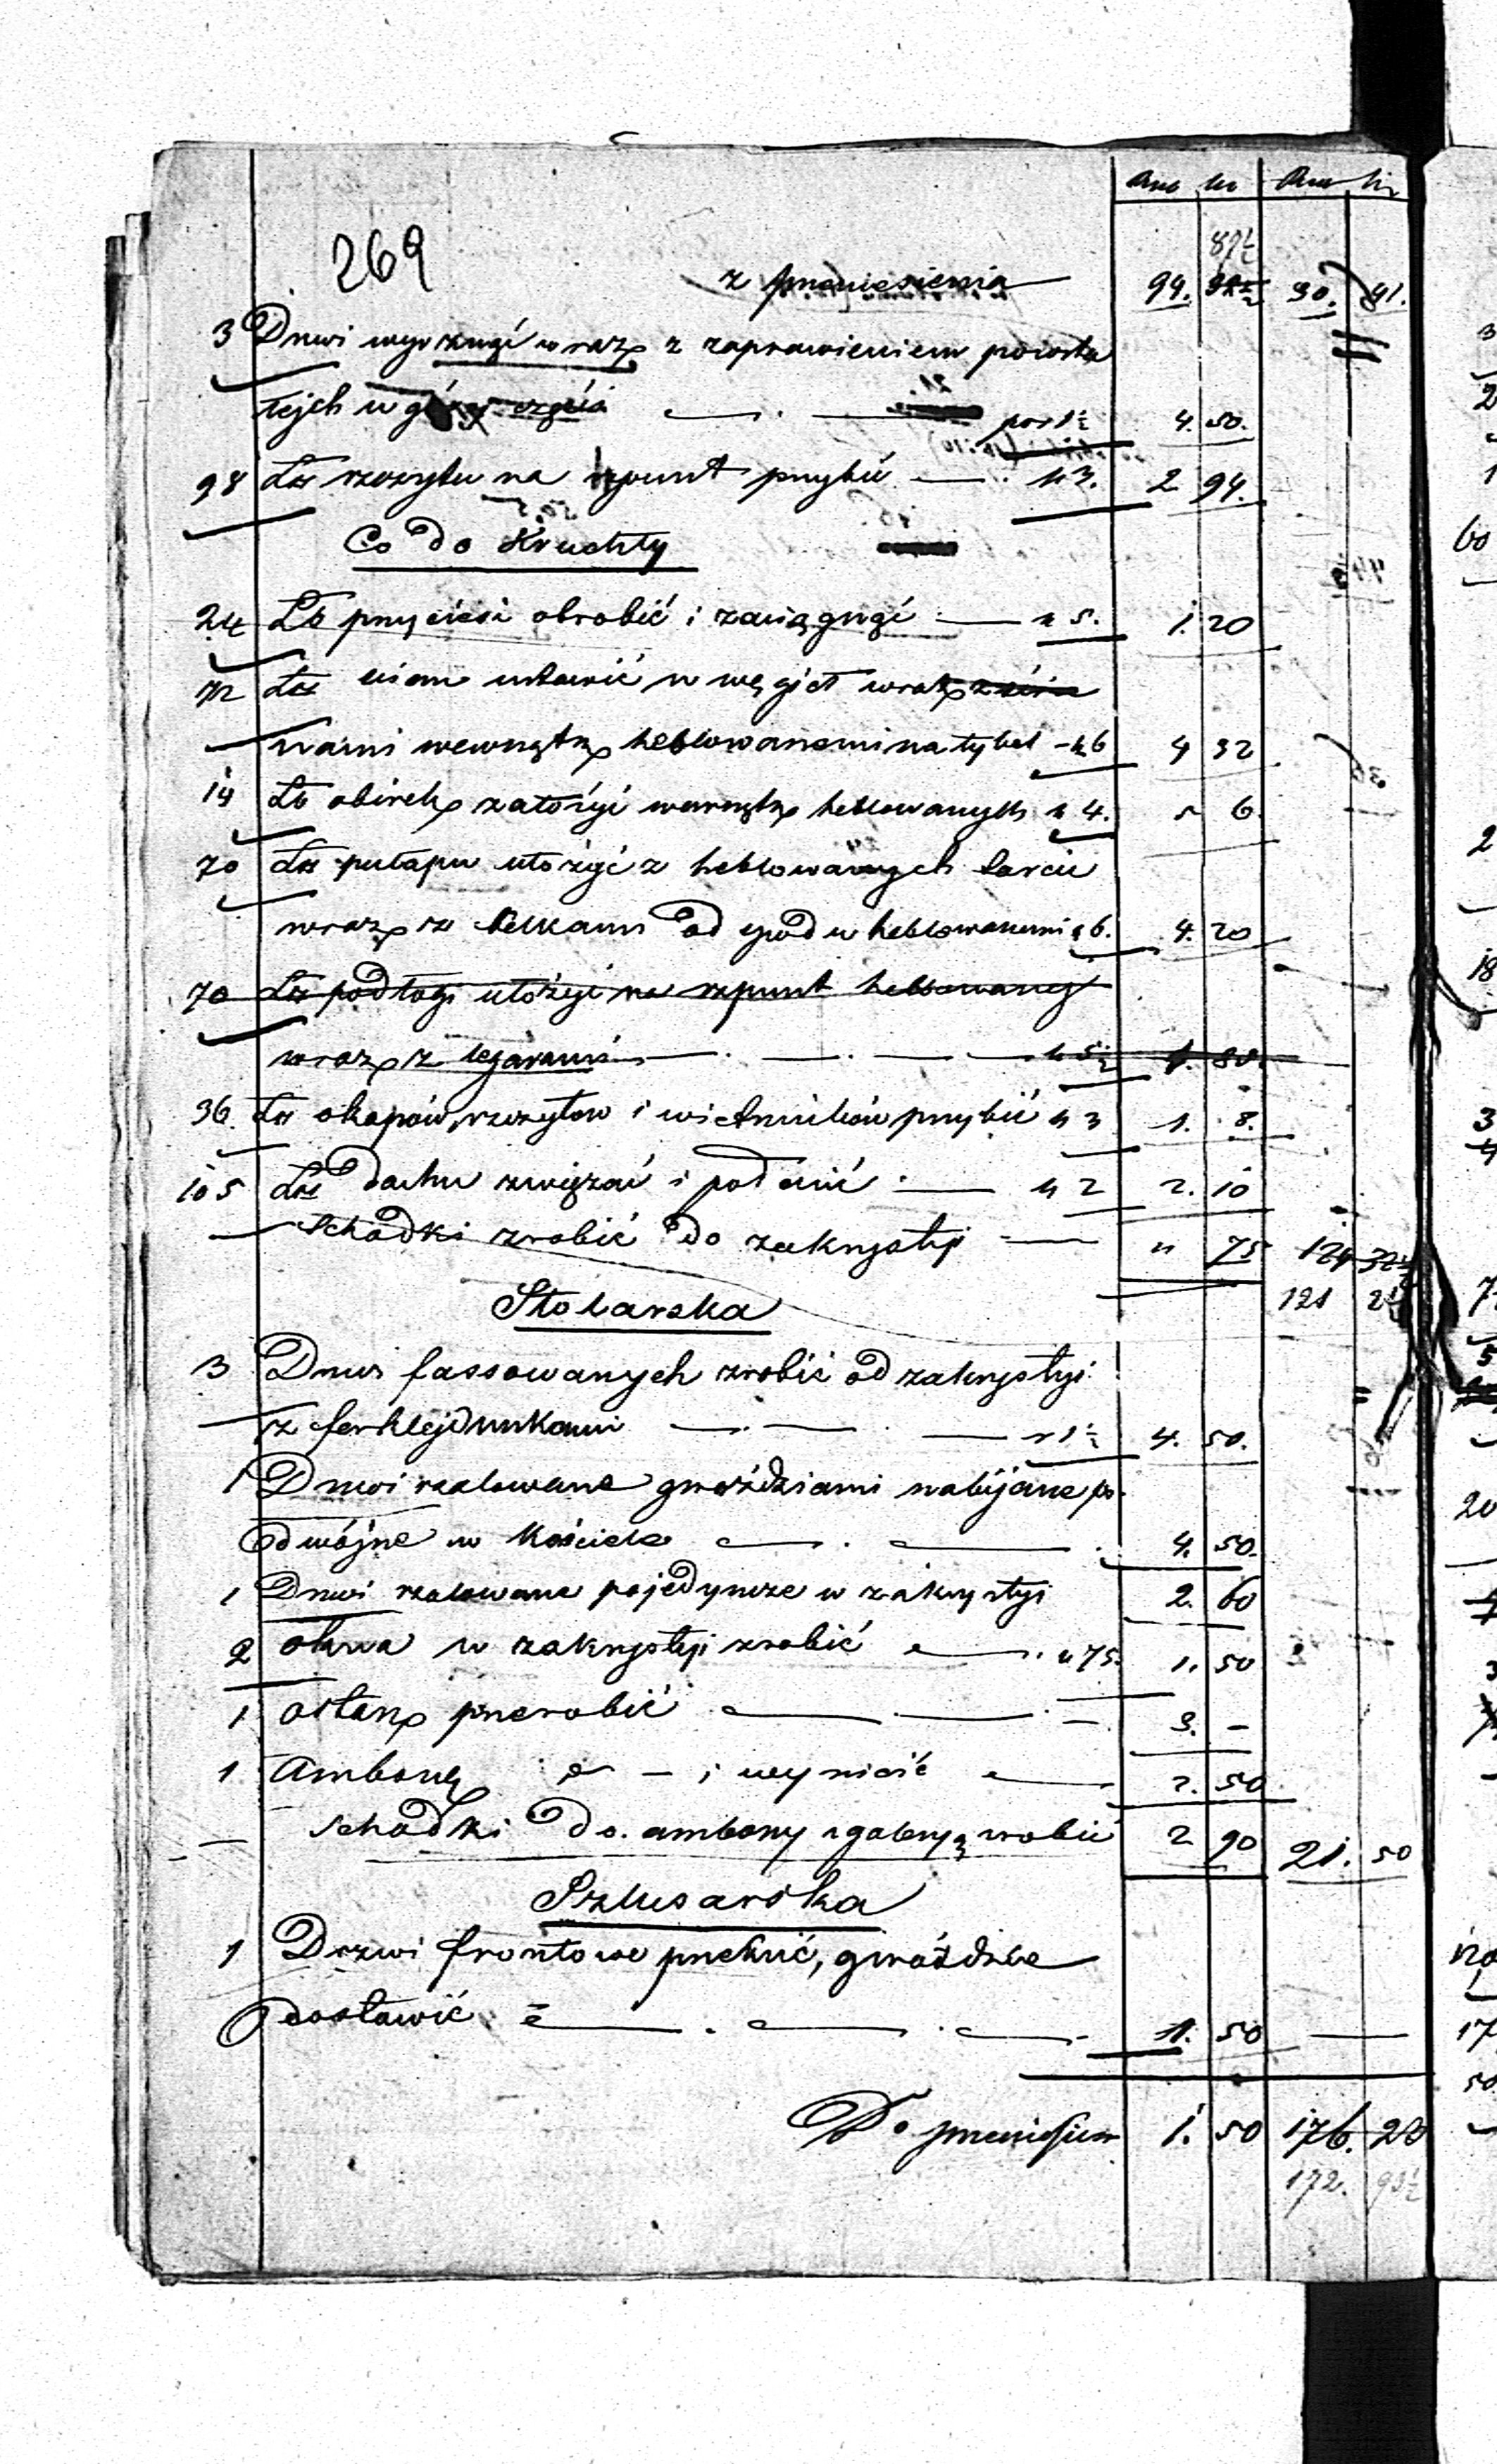 Rus kr Rus kr
269 87½
z przeniesienia 94. 30. 41.
3 Drzwi wyrznąć wraz z zaprawieniem powsta
łych w górze częścia po 1½ 4. 50.
98 Łk szczytu na szpunt przybić — k 3. 2 94.
Co do Kruchty
24 Łb przyciesi obrobić i zaciągnąć — k 5. 1. 20
72 Łk ścian ustawić w węgieł wraz
nami wewnątrz heblowanemi na tybel — k 6 4 32
14 Łb obirek założyć wewnątrz heblowanych k 4. „ 56
70 Łk pułapu ułożyć z heblowanych tarcic
wraz z belkami od spodu heblowanemi k 6. 4. 20
70 Łk podłogi ułożyć na szpunt heblowanej
wraz z legarami — k 5½
36. Łk okapów, szczytów i wietrników przybić k 3 1. 8.
105 Łk dachu związać i połacić — k 2 2. 10
— Schodki zrobić do zakrystyi — „ 75 124 32½
121 2½
Stolarska
3 Drzwi fassowanych zrobić od zakrystyi
z ferklejdunkami — r 1½ 4. 50.
1 Drzwi szalowane gwoździami nabijane po-
dwójne w kościele 4. 50.
1 Drzwi szalowane pojedyncze w zakrystyi 2. 60
2 okna w zakrystyi zrobić — k 75. 1. 50
1 ołtarz przerobić — 3. –
1 Ambonę d° – i wynieść — 2. 50
— Schodki do ambony z galeryą zrobić 2 90 21. 50
Szlusarska
1 Drzwi frontowe przekuć, gwoździe
dostawić — 1. 50 —
Do przeniesien 1. 50 176. 23
172. 93½